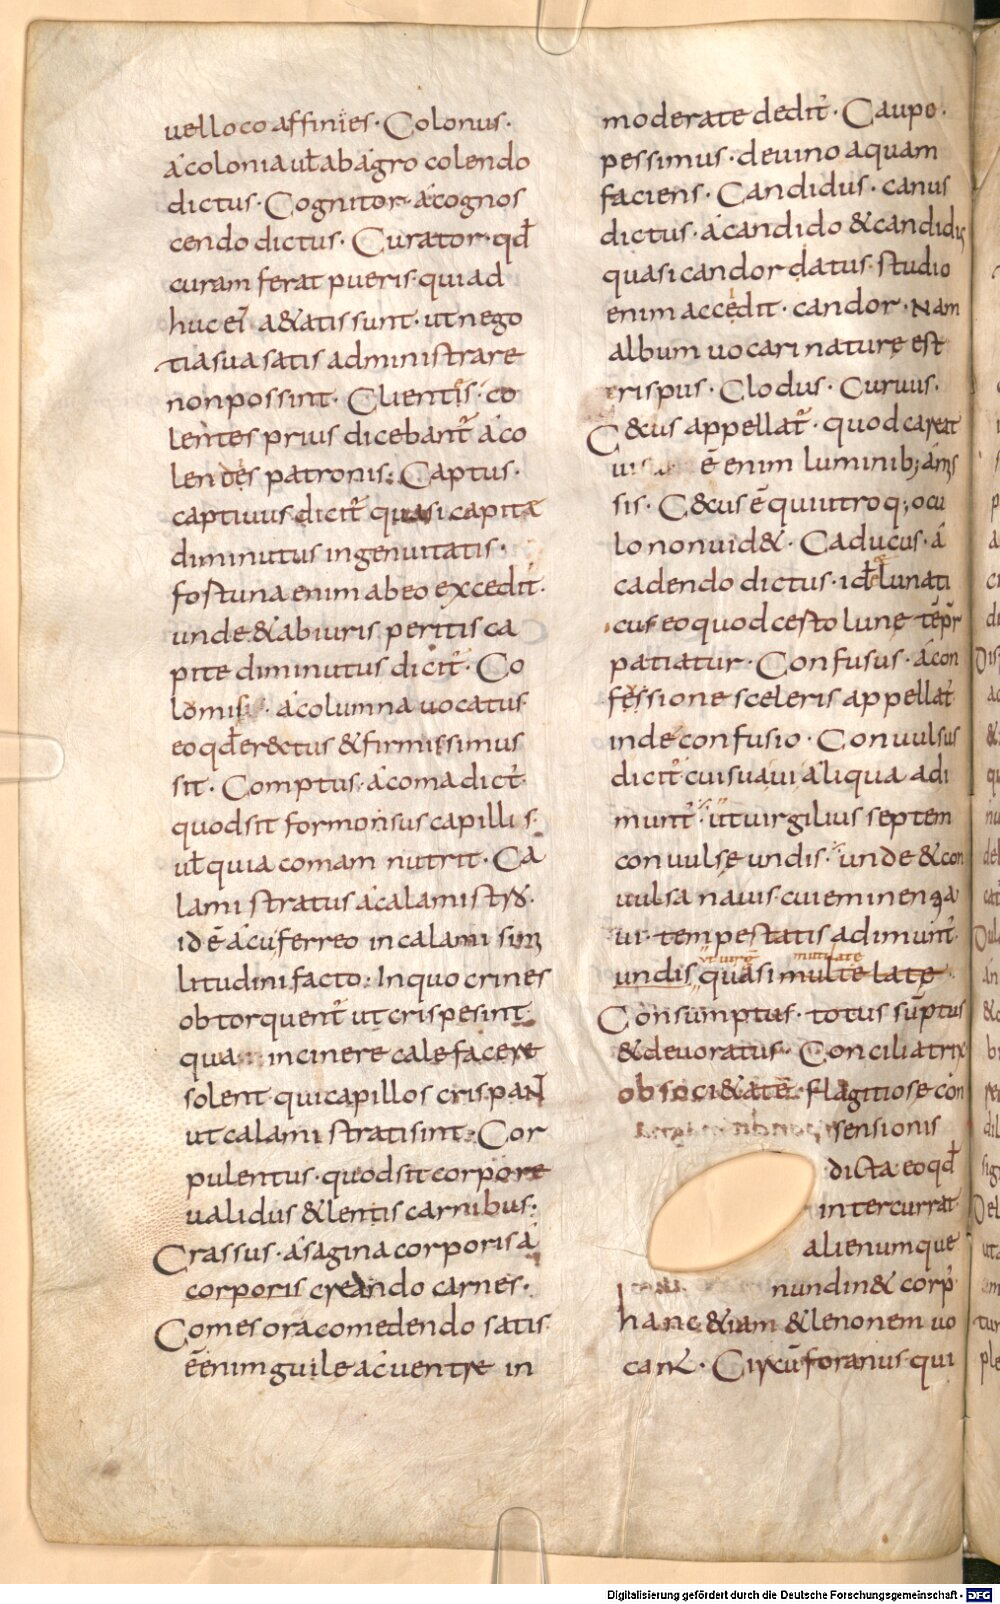 uel loco affinies · Colonus ·
a colonia ul̄ ab agro colendo
dictus · Cognitor · a cognos
cendo dictus · Curator · qđ
curam ferat pueris · qui ad
huc ei᷒ a&atis sunt · ut nego
tia sua satis administrare
non possint · Clientis · co
lentes prius dicebant᷒ a co
lendes patronis : Captus ·
captiuus dicit᷒ quasi capita
diminutus ingenuitatis ·
fostuna enim ab eo excedit ·
unde & ab iuris peritis ca
pite diminutus dicit᷒ · Co
lomis · a columna uocatus
eo qđ er&ctus & firmissimus
sit · Comptus · a coma dict᷒
quod sit formonsus capillis ·
ul̄ quia comam nutrit · Ca
lamistratus a calamistro ·
id ē acu ferreo in calami simi
litudini facto : In quo crines
obtorquent᷒ ut crispe sint
qua in cinere calefacere
solent qui capillos crispaNT
ut calamistrati sint : Cor
pulentus · quod sit corpore
ualidus & lentis carnibus :
Crassus · a sagina corporis a
corporis creando carnes ·
Comesor a comedendo satis
ē enim guile ac uentre in
moderate dedit᷒ · Caupo ·
pessimus · de uino aquam
faciens · Candidus · canus
dictus · a candido & candidus
quasi candor datus · studio
enim accedit · candor · Nam
album uocari nature est
crispus · Clodus · Curuus ·
C&cus appellat᷒ · quod careat
ui ē enim luminib; amis
sis · C&cus ē qui utroq; ocu
lo non uid& · Caducus · a
cadendo dictus · id ē lunati
cus eo quod cesto lune tēpr̄
patiatur · Confusus · a con
fessione sceleris appellat᷒
inde confusio · Conuulsus
dicit᷒ cui sua ui aliqua adi
munt᷒ · ut uirgilius septem
conuulse undis · unde & con
uulsa nauis cui eminenga
ui tempestatis adimunt᷒
ut uirg̅ mutilate
undis quasi multe late ·
Consumptus · totus sūptus
& deuoratus · Conciliatrix
ob soci&atē flagitiose con
sensionis
dicta eo qđ
intercurrat
alienumque
nundin& corp᷒
hanc &iam & lenonem uo
cant · Circū foranus · qui
Digitalisierung gefördert durch die Deutsche Forschungsgemeinschaft · DFG